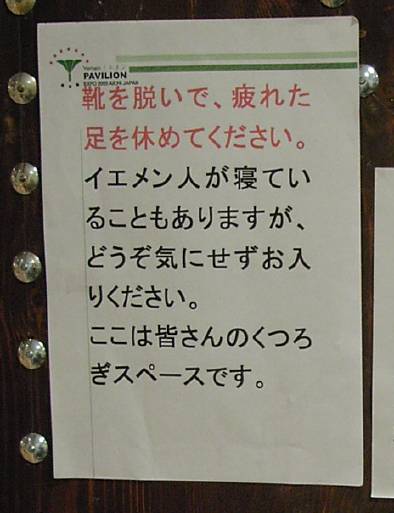 Yemen イエメン
PAVILION
EXPO 2005 AICHI JAPAN
靴を脱いで、疲れた
足を休めてください。
イエメン人が寝てい
ることもありますが、
どうぞ気にせずお入
りください。
ここは皆さんのくつろ
ぎスペースです。